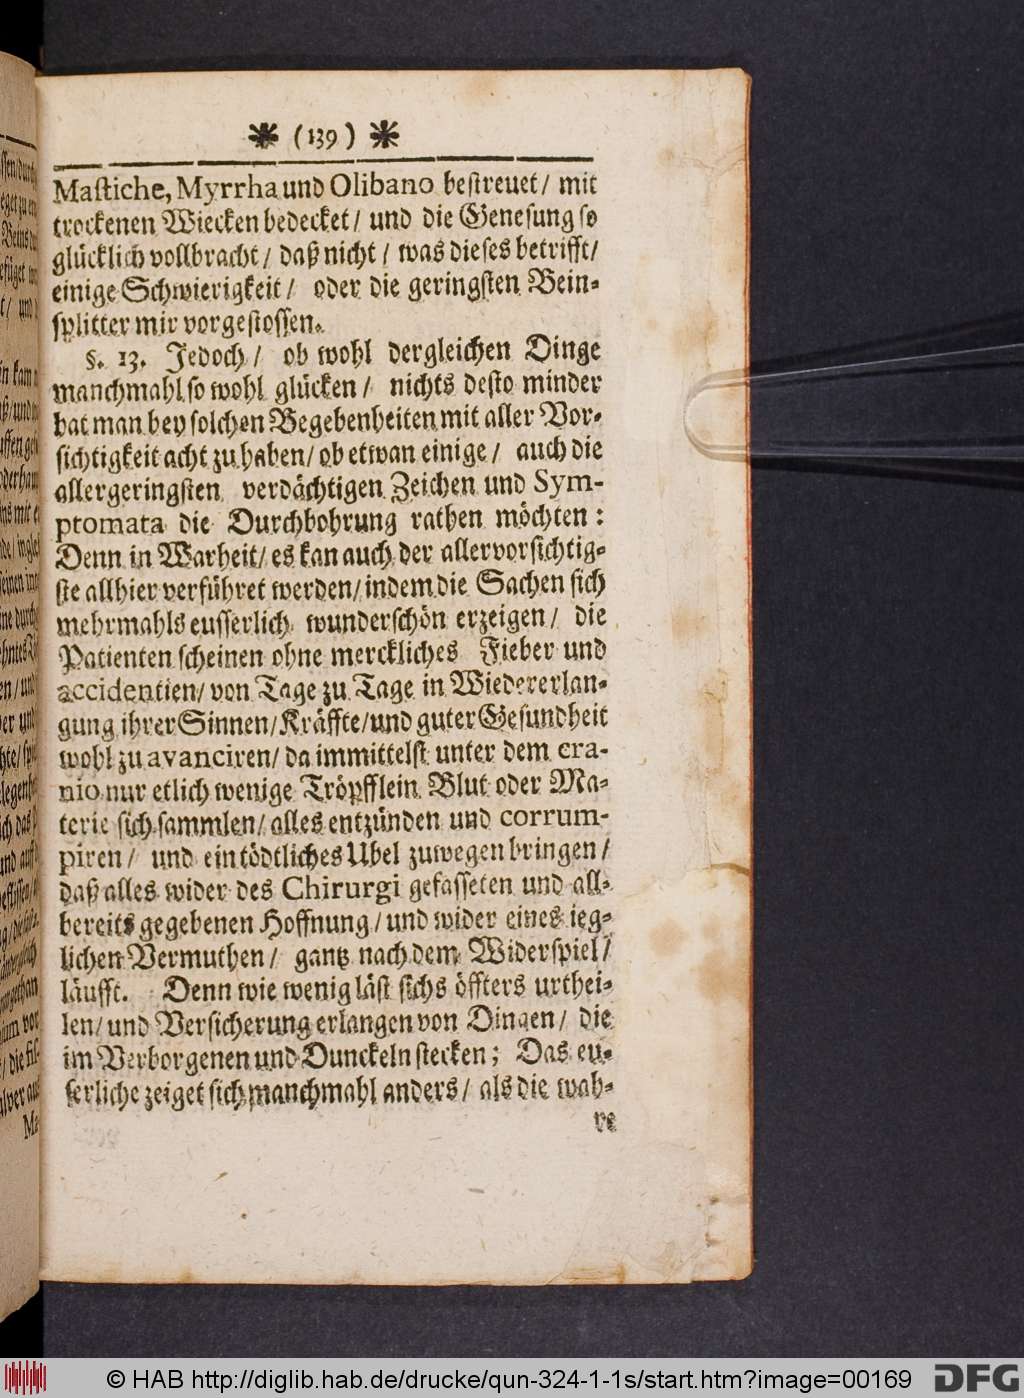 * (139) *
Mastiche, Myrrha und Olibano bestreuet / mit
trockenen Wiecken bedecket / und die Genesung so
glücklich vollbracht / daß nicht / was dieses betrifft /
einige Schwierigkeit / oder die geringsten Bein-
splitter mir vorgestossen.
§. 13. Jedoch / ob wohl dergleichen Dinge
manchmahl so wohl glücken / nichts desto minder
hat man bey solchen Begebenheiten mit aller Vor-
sichtigkeit acht zu haben / ob etwan einige / auch die
allergeringsten verdächtigen Zeichen und Sym-
ptomata die Durchbohrung rathen möchten:
Denn in Warheit / es kan auch der allervorsichtig-
ste allhier verführet werden / indem die Sachen sich
mehrmahls eusserlich wunderschön erzeigen / die
Patienten scheinen ohne merckliches Fieber und
accidentien / von Tage zu Tage in Wiedererlan-
gung ihrer Sinnen / Kräffte / und guter Gesundheit
wohl zu avanciren / da immittelst unter dem cra-
nio nur etlich wenige Tröpfflein Blut oder Ma-
terie sich sammlen / alles entzünden und corrum-
piren / und ein tödtliches Ubel zuwegen bringen /
daß alles wider des Chirurgi gefasseten und all-
bereits gegebenen Hoffnung / und wider eines ieg-
lichen Vermuthen / gantz nach dem Widerspiel /
läufft. Denn wie wenig läst sichs öffters urthei-
len / und Versicherung erlangen von Dingen / die
im Verborgenen und Dunckeln stecken; Das eu-
serliche zeiget sich manchmahl anders / als die wah-
re
© HAB http://diglib.hab.de/drucke/qun-324-1-1s/start.htm?image=00169
DFG